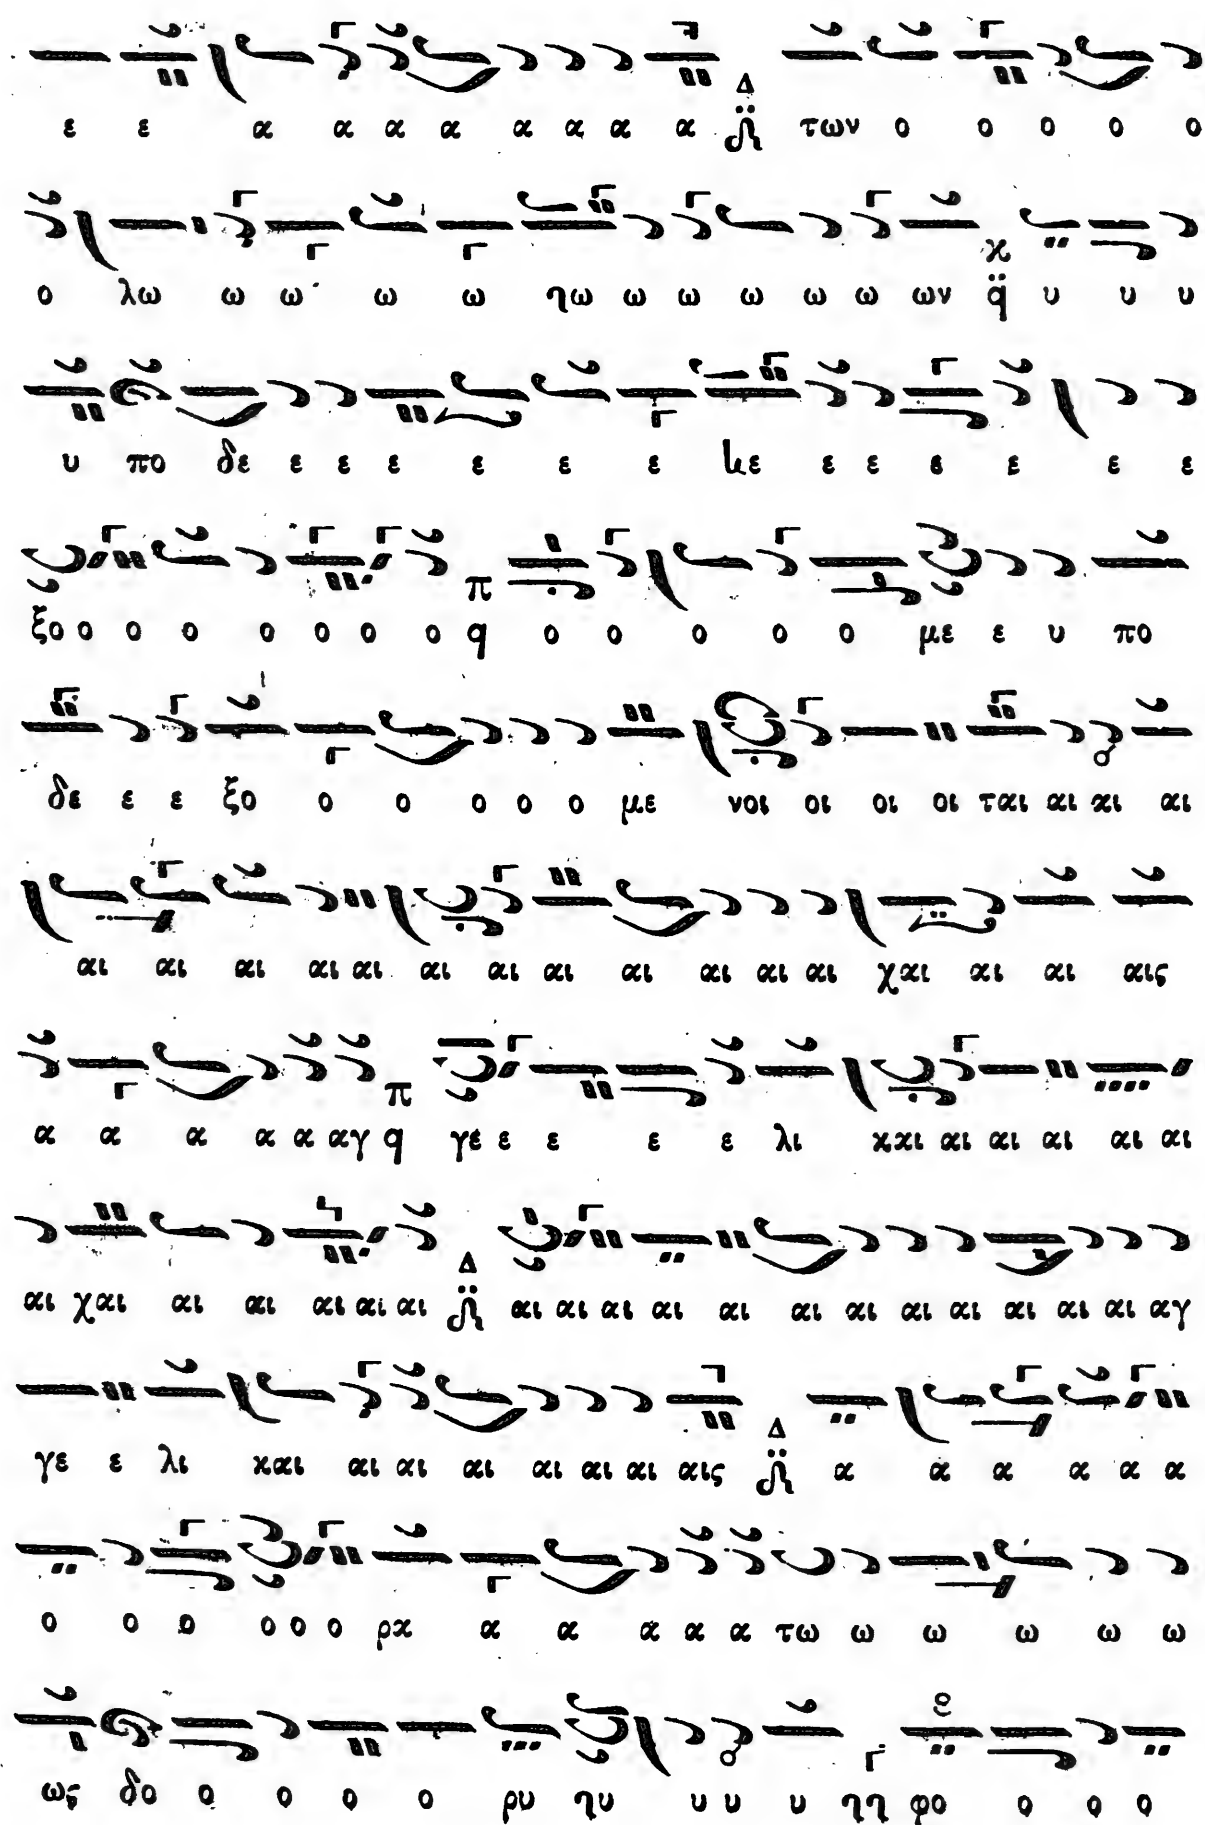 ε ε α α α α α α α α Δ των ο ο ο ο ο
ο λω ω ω ω ω ηω ω ω ω ω ω ων ϰ q̈ υ υ υ
υ πο δε ε ε ε ε ε ε ε ε ε ε ε ε
ξο ο ο ο ο ο ο ο π q ο ο ο ο ο με ε υ πο
δε ε ε ξο ο ο ο ο ο με νοι οι οι οι ται αι αι αι
αι αι αι αι αι αι αι αι αι αι αι αι χαι αι αι αις
α α α α α αγ π q γε ε ε ε ε λι και αι αι αι αι αι
αι χαι αι αι αι αι αι Δ αι αι αι αι αι αι αι αι αι αι αι αι αγ
γε ε λι και αι αι αι αι αι αι αις Δ α α α α α α
ο ο ο ο ο ο ρα α α α α α τω ω ω ω ω ω
ως δο ο ο ο ο ρυ ηυ υ υ υ ηη φο ο ο ο